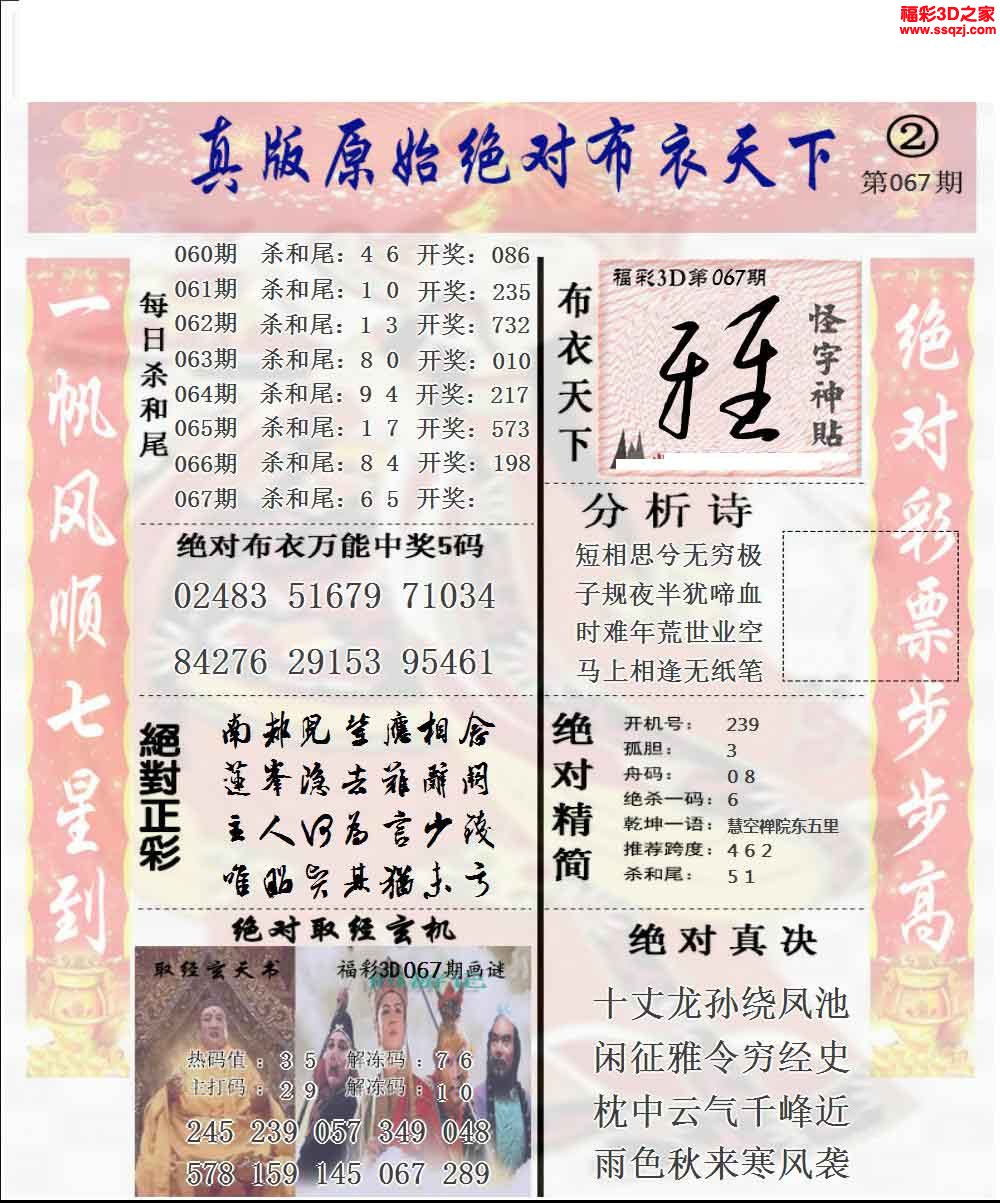 福彩3D之家
www.ssqzj.com
真版原始绝对布衣天下
②
第067期
一帆风顺七星到
每日杀和尾
060期 杀和尾：4 6 开奖：086
061期 杀和尾：1 0 开奖：235
062期 杀和尾：1 3 开奖：732
063期 杀和尾：8 0 开奖：010
064期 杀和尾：9 4 开奖：217
065期 杀和尾：1 7 开奖：573
066期 杀和尾：8 4 开奖：198
067期 杀和尾：6 5 开奖：
绝对布衣万能中奖5码
02483 51679 71034
84276 29153 95461
絕對正彩
南 相
隐去
主人何为言少
唯 其猶未
绝对取经玄机
取经玄天书
福彩3D067期画谜
热码值：3 5 解冻码：7 6
主打码：2 9 解冻码：1 0
245 239 057 349 048
578 159 145 067 289
布衣天下
福彩3D第067期
雅
怪字神貼
分析诗
短相思兮无穷极
子规夜半犹啼血
时难年荒世业空
马上相逢无纸笔
绝对精简
开机号： 239
孤胆： 3
舟码： 0 8
绝杀一码：6
乾坤一语：慧空禅院东五里
推荐跨度：4 6 2
杀和尾： 5 1
绝对真决
十丈龙孙绕凤池
闲征雅令穷经史
枕中云气千峰近
雨色秋来寒风袭
绝对彩票步步高